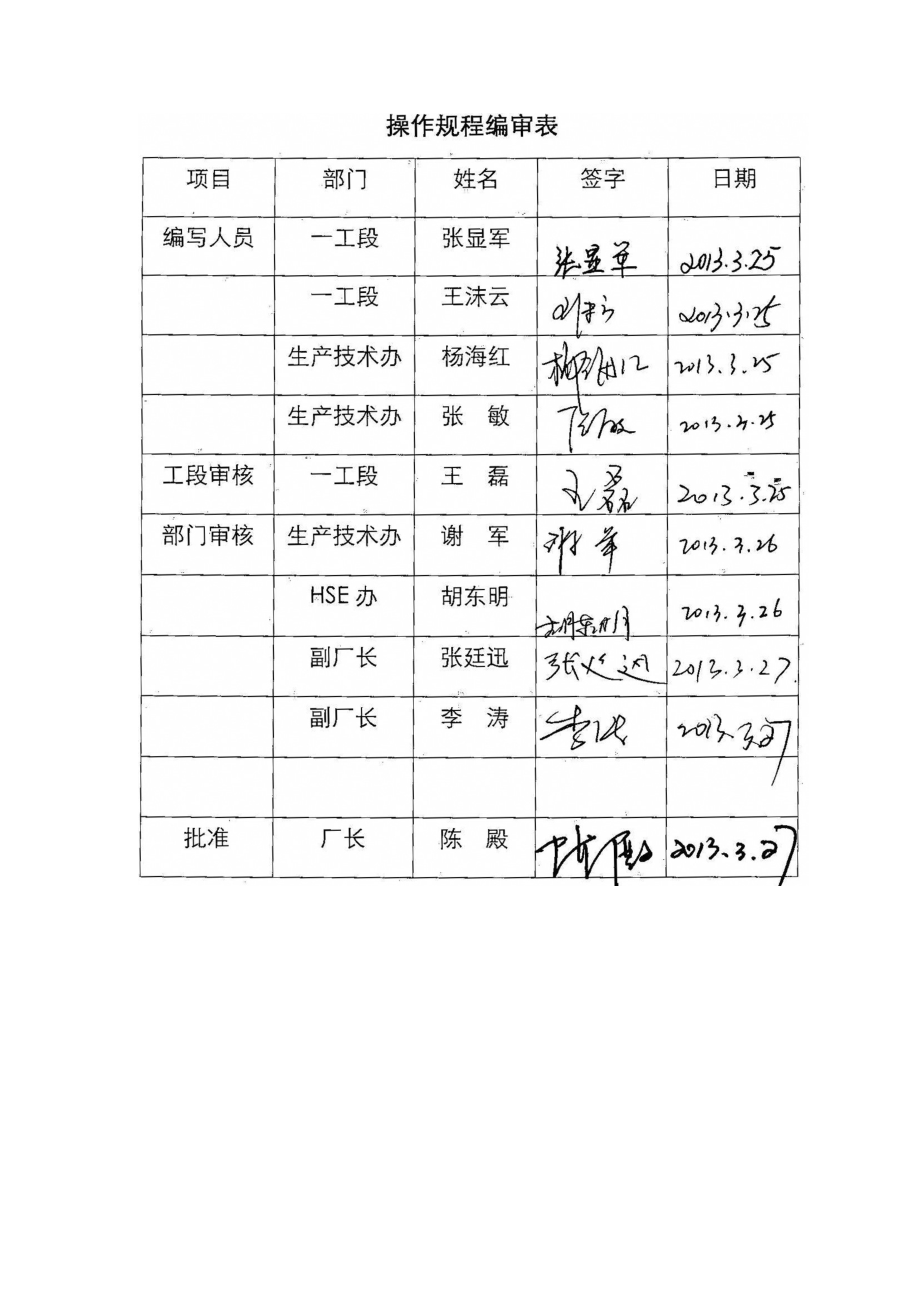 操作规程编审表
项目 部门 姓名 签字 日期
编写人员 一工段 张显军 张显军 2013.3.25
一工段 王沫云 2013.3.25
生产技术办 杨海红 杨海红 2013.3.25
生产技术办 张 敏 张敏 2013.3.25
工段审核 一工段 王 磊 王磊 2013.3.25
部门审核 生产技术办 谢 军 谢军 2013.3.26
HSE 办 胡东明 胡东明 2013.3.26
副厂长 张廷迅 张廷迅 2013.3.27.
副厂长 李 涛 李涛 2013.3.27
批准 厂长 陈 殿 陈殿 2013.3.27